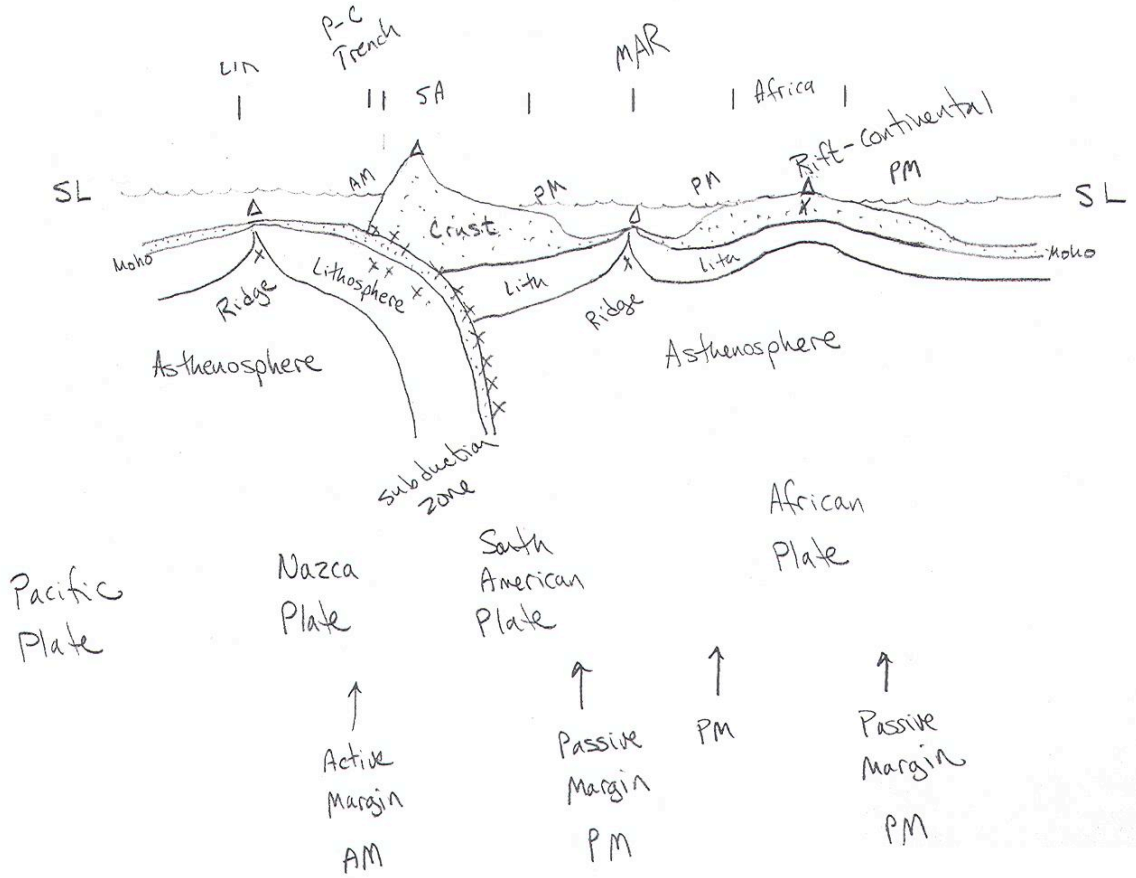 P-C
Trench
LIN
SA
MAR
Africa
Rift-continental
SL
AM
PM
PM
PM
SL
Crust
Moho
Lithosphere
Ridge
Lith
Ridge
Lith
Moho
Asthenosphere
Asthenosphere
subduction
zone
Pacific
Plate
Nazca
Plate
South
American
Plate
African
Plate
Active
Margin
AM
Passive
Margin
PM
PM
Passive
Margin
PM